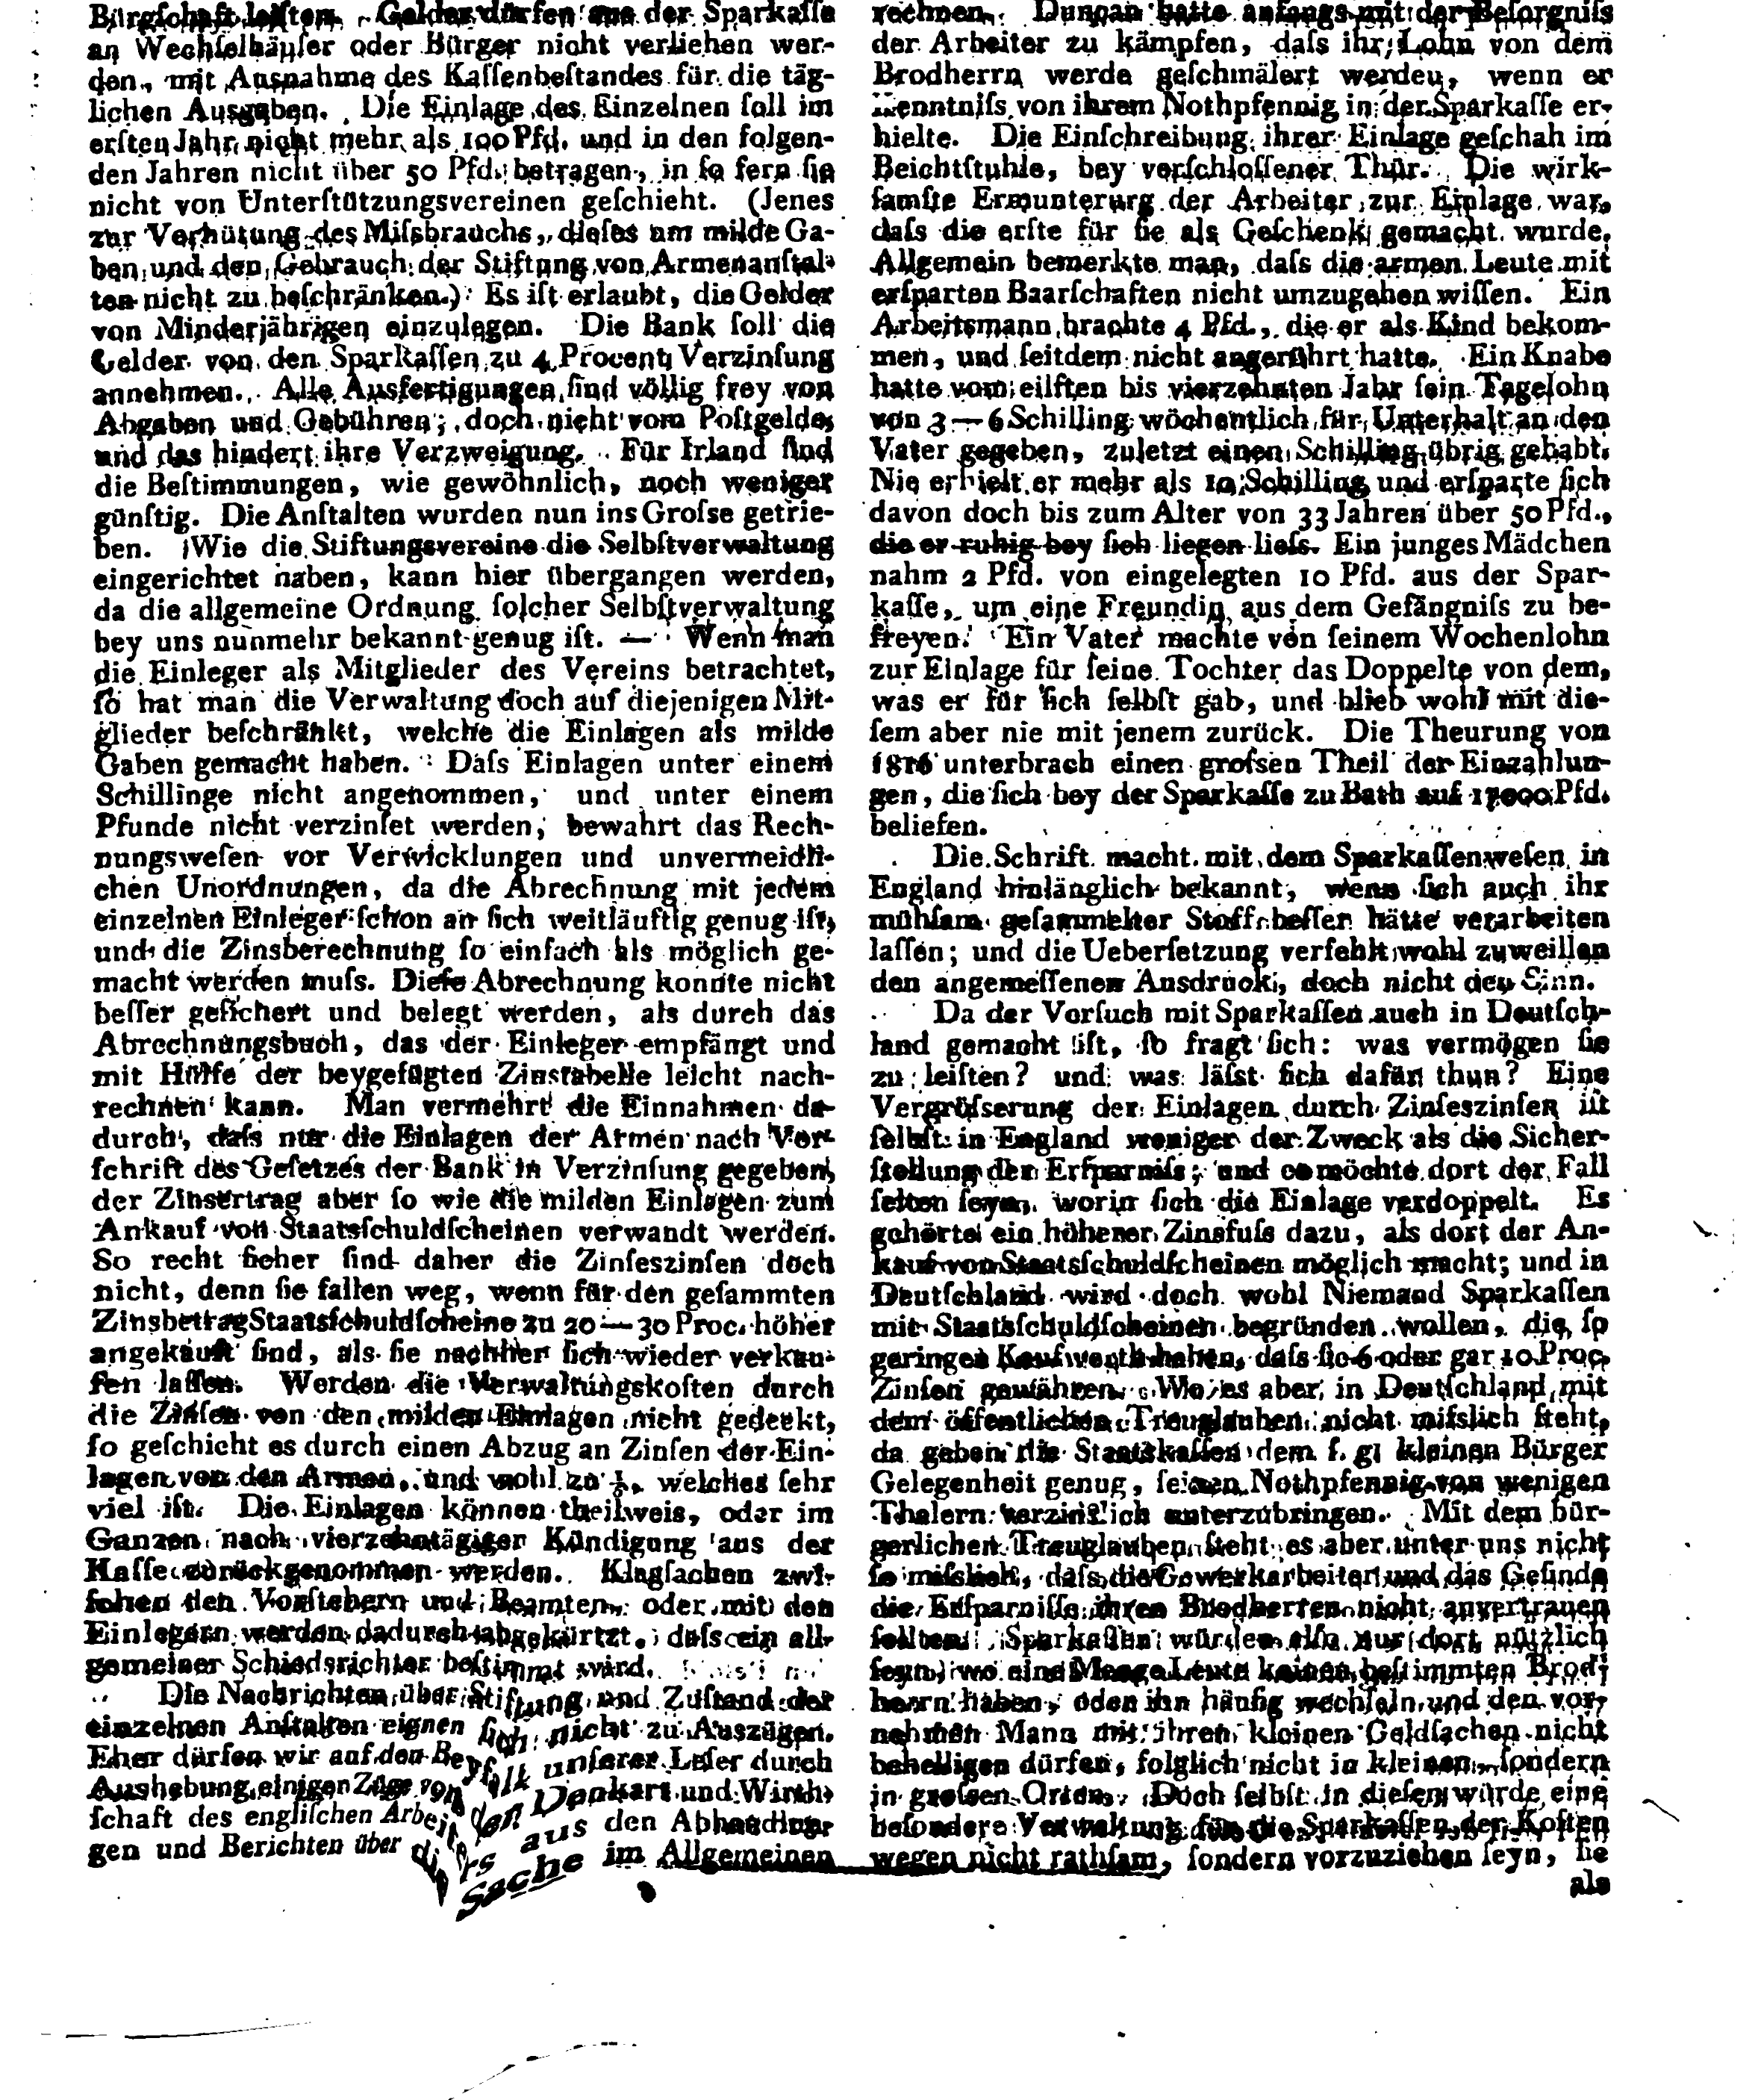 Bürgſchaft leiſten. Gelder dürfen aus der Sparkaſſe
an Wechſelhäuſer oder Bürger nicht verliehen wer-
den, mit Ausnahme des Kaſſenbeſtandes für die täg-
lichen Ausgaben. Die Einlage des Einzelnen ſoll im
erſten Jahr nicht mehr als 100 Pfd. und in den folgen-
den Jahren nicht über 50 Pfd. betragen, in ſo fern ſie
nicht von Unterſtützungsvereinen geſchieht. (Jenes
zur Verhütung des Miſsbrauchs, dieſes um milde Ga-
ben und den Gebrauch der Stiftung von Armenanſtal-
ten nicht zu beſchränken.) Es iſt erlaubt, die Gelder
von Minderjährigen einzulegen. Die Bank ſoll die
Gelder von den Sparkaſſen zu 4 Procent Verzinſung
annehmen. Alle Ausfertigungen ſind völlig frey von
Abgaben und Gebühren; doch nicht vom Poſtgelde,
und das hindert ihre Verzweigung. Für Irland ſind
die Beſtimmungen, wie gewöhnlich, noch weniger
günſtig. Die Anſtalten wurden nun ins Groſse getrie-
ben. Wie die Stiftungsvereine die Selbſtverwaltung
eingerichtet haben, kann hier übergangen werden,
da die allgemeine Ordnung ſolcher Selbſtverwaltung
bey uns nunmehr bekannt genug iſt. — Wenn man
die Einleger als Mitglieder des Vereins betrachtet,
ſo hat man die Verwaltung doch auf diejenigen Mit-
glieder beſchränkt, welche die Einlagen als milde
Gaben gemacht haben. Daſs Einlagen unter einem
Schillinge nicht angenommen, und unter einem
Pfunde nicht verzinſet werden, bewahrt das Rech-
nungsweſen vor Verwicklungen und unvermeidli-
chen Unordnungen, da die Abrechnung mit jedem
einzelnen Einleger ſchon an ſich weitläuftig genug iſt,
und die Zinsberechnung ſo einfach als möglich ge-
macht werden muſs. Dieſe Abrechnung konnte nicht
beſſer geſichert und belegt werden, als durch das
Abrechnungsbuch, das der Einleger empfängt und
mit Hülfe der beygefügten Zinstabelle leicht nach-
rechnen kann. Man vermehrt die Einnahmen da-
durch, daſs nur die Einlagen der Armen nach Vor-
ſchrift des Geſetzes der Bank in Verzinſung gegeben,
der Zinsertrag aber ſo wie die milden Einlagen zum
Ankauf von Staatsſchuldſcheinen verwandt werden.
So recht ſicher ſind daher die Zinſeszinſen doch
nicht, denn ſie fallen weg, wenn für den geſammten
Zinsbetrag Staatsſchuldſcheine zu 20 — 30 Proc. höher
angekauft ſind, als ſie nachher ſich wieder verkau-
fen laſſen. Werden die Verwaltungskoſten durch
die Zinſen von den milden Einlagen nicht gedeckt,
ſo geſchieht es durch einen Abzug an Zinſen der Ein-
lagen von den Armen, und wohl zu welches ſehr
viel iſt. Die Einlagen können theilweis, oder im
Ganzen nach vierzehntägiger Kündigung aus der
Kaſſe zurückgenommen werden. Klagſachen zwi-
ſchen den Vorſtehern und Beamten, oder mit den
Einlegern werden dadurch abgekürtzt, daſs ein all-
gemeiner Schiedsrichter beſtimmt wird.
Die Nachrichten über Stiftung und Zuſtand der
einzelnen Anſtalten eignen ſich nicht zu Auszügen.
Eher dürfen wir auf den Beyfall unſerer Leſer durch
Aushebung einigen Züge von den Denkart und Wirth-
ſchaft des engliſchen Arbeiters aus den Abhandlun-
gen und Berichten über die Sache im Allgemeinen
rechnen. Duncan hatte anfangs mit der Beſorgniſs
der Arbeiter zu kämpfen, daſs ihr Lohn von dem
Brodherrn werde geſchmälert werden, wenn er
Kenntniſs von ihrem Nothpfennig in der Sparkaſſe er-
hielte. Die Einſchreibung ihrer Einlage geſchah im
Beichtſtuhle, bey verſchloſſener Thür. Die wirk-
ſamſte Ermunterurg der Arbeiter zur Einlage war,
daſs die erſte für ſie als Geſchenk gemacht wurde.
Allgemein bemerkte man, daſs die armen Leute mit
erſparten Baarſchaften nicht umzugehen wiſſen. Ein
Arbeitsmann brachte 4 Pfd., die er als Kind bekom-
men, und ſeitdem nicht angerührt hatte. Ein Knabe
hatte vom eilften bis vierzehnten Jahr ſein Tagelohn
von 3 — 6 Schilling wöchentlich für Unterhalt an den
Vater gegeben, zuletzt einen Schilling übrig gehabt.
Nie erhielt er mehr als 10 Schilling und erſparte ſich
davon doch bis zum Alter von 33 Jahren über 50 Pfd.,
die er ruhig bey ſich liegen lieſs. Ein junges Mädchen
nahm 2 Pfd. von eingelegten 10 Pfd. aus der Spar-
kaſſe, um eine Freundin aus dem Gefängniſs zu be-
freyen. Ein Vater machte von ſeinem Wochenlohn
zur Einlage für ſeine Tochter das Doppelte von dem,
was er für ſich ſelbſt gab, und blieb wohl mit die-
ſem aber nie mit jenem zurück. Die Theurung von
1816 unterbrach einen groſsen Theil der Einzahlun-
gen, die ſich bey der Sparkaſſe zu Bath auf 17000 Pfd.
beliefen.
Die Schrift macht mit dem Sparkaſſenweſen in
England hinlänglich bekannt, wenn ſich auch ihr
mühſam geſammelter Stoff beſſer hätte verarbeiten
laſſen; und die Ueberſetzung verfehlt wohl zuweillen
den angemeſſenen Ausdruck, doch nicht den Sinn.
Da der Vorſuch mit Sparkaſſen auch in Deutſch-
land gemacht iſt, ſo fragt ſich: was vermögen ſie
zu leiſten? und was läſst ſich dafür thun? Eine
Vergröſserung der Einlagen durch Zinſeszinſen iſt
ſelbſt in England weniger der Zweck als die Sicher-
ſtellung der Erſparniſs; und es möchte dort der Fall
ſelten ſeyn, worin ſich die Einlage verdoppelt. Es
gehörte ein höherer Zinsfuſs dazu, als dort der An-
kauf von Staatsſchuldſcheinen möglich macht; und in
Deutſchland wird doch wohl Niemand Sparkaſſen
mit Staatsſchuldſcheinen begründen wollen, die ſo
geringen Kaufwerth haben, daſs ſie 6 oder gar 10 Proc.
Zinſen gewähren. Wo es aber in Deutſchland mit
dem öffentlichen Treuglauben nicht miſslich ſteht,
da geben die Staatskaſſen dem ſ. g. kleinen Bürger
Gelegenheit genug, ſeinen Nothpfennig von wenigen
Thalern verzinſlich unterzubringen. Mit dem bür-
gerlichen Treuglauben ſteht es aber unter uns nicht
ſo miſslich, daſs die Gewerkarbeiter und das Geſinde
die Erſparniſſe ihren Brodherren nicht anvertrauen
ſollten. Sparkaſſen würden alſo nur dort nützlich
ſeyn, wo eine Menge Leute keinen beſtimmten Brod-
herrn haben, oder ihn häufig wechſeln und den vor-
nehmen Mann mit ihren kleinen Geldſachen nicht
behelligen dürfen, folglich nicht in kleinen, ſondern
in groſsen Orten. Doch ſelbſt in dieſen würde eine
beſondere Verwaltung für die Sparkaſſen der Koſten
wegen nicht rathſam, ſondern vorzuziehen ſeyn, ſie
als